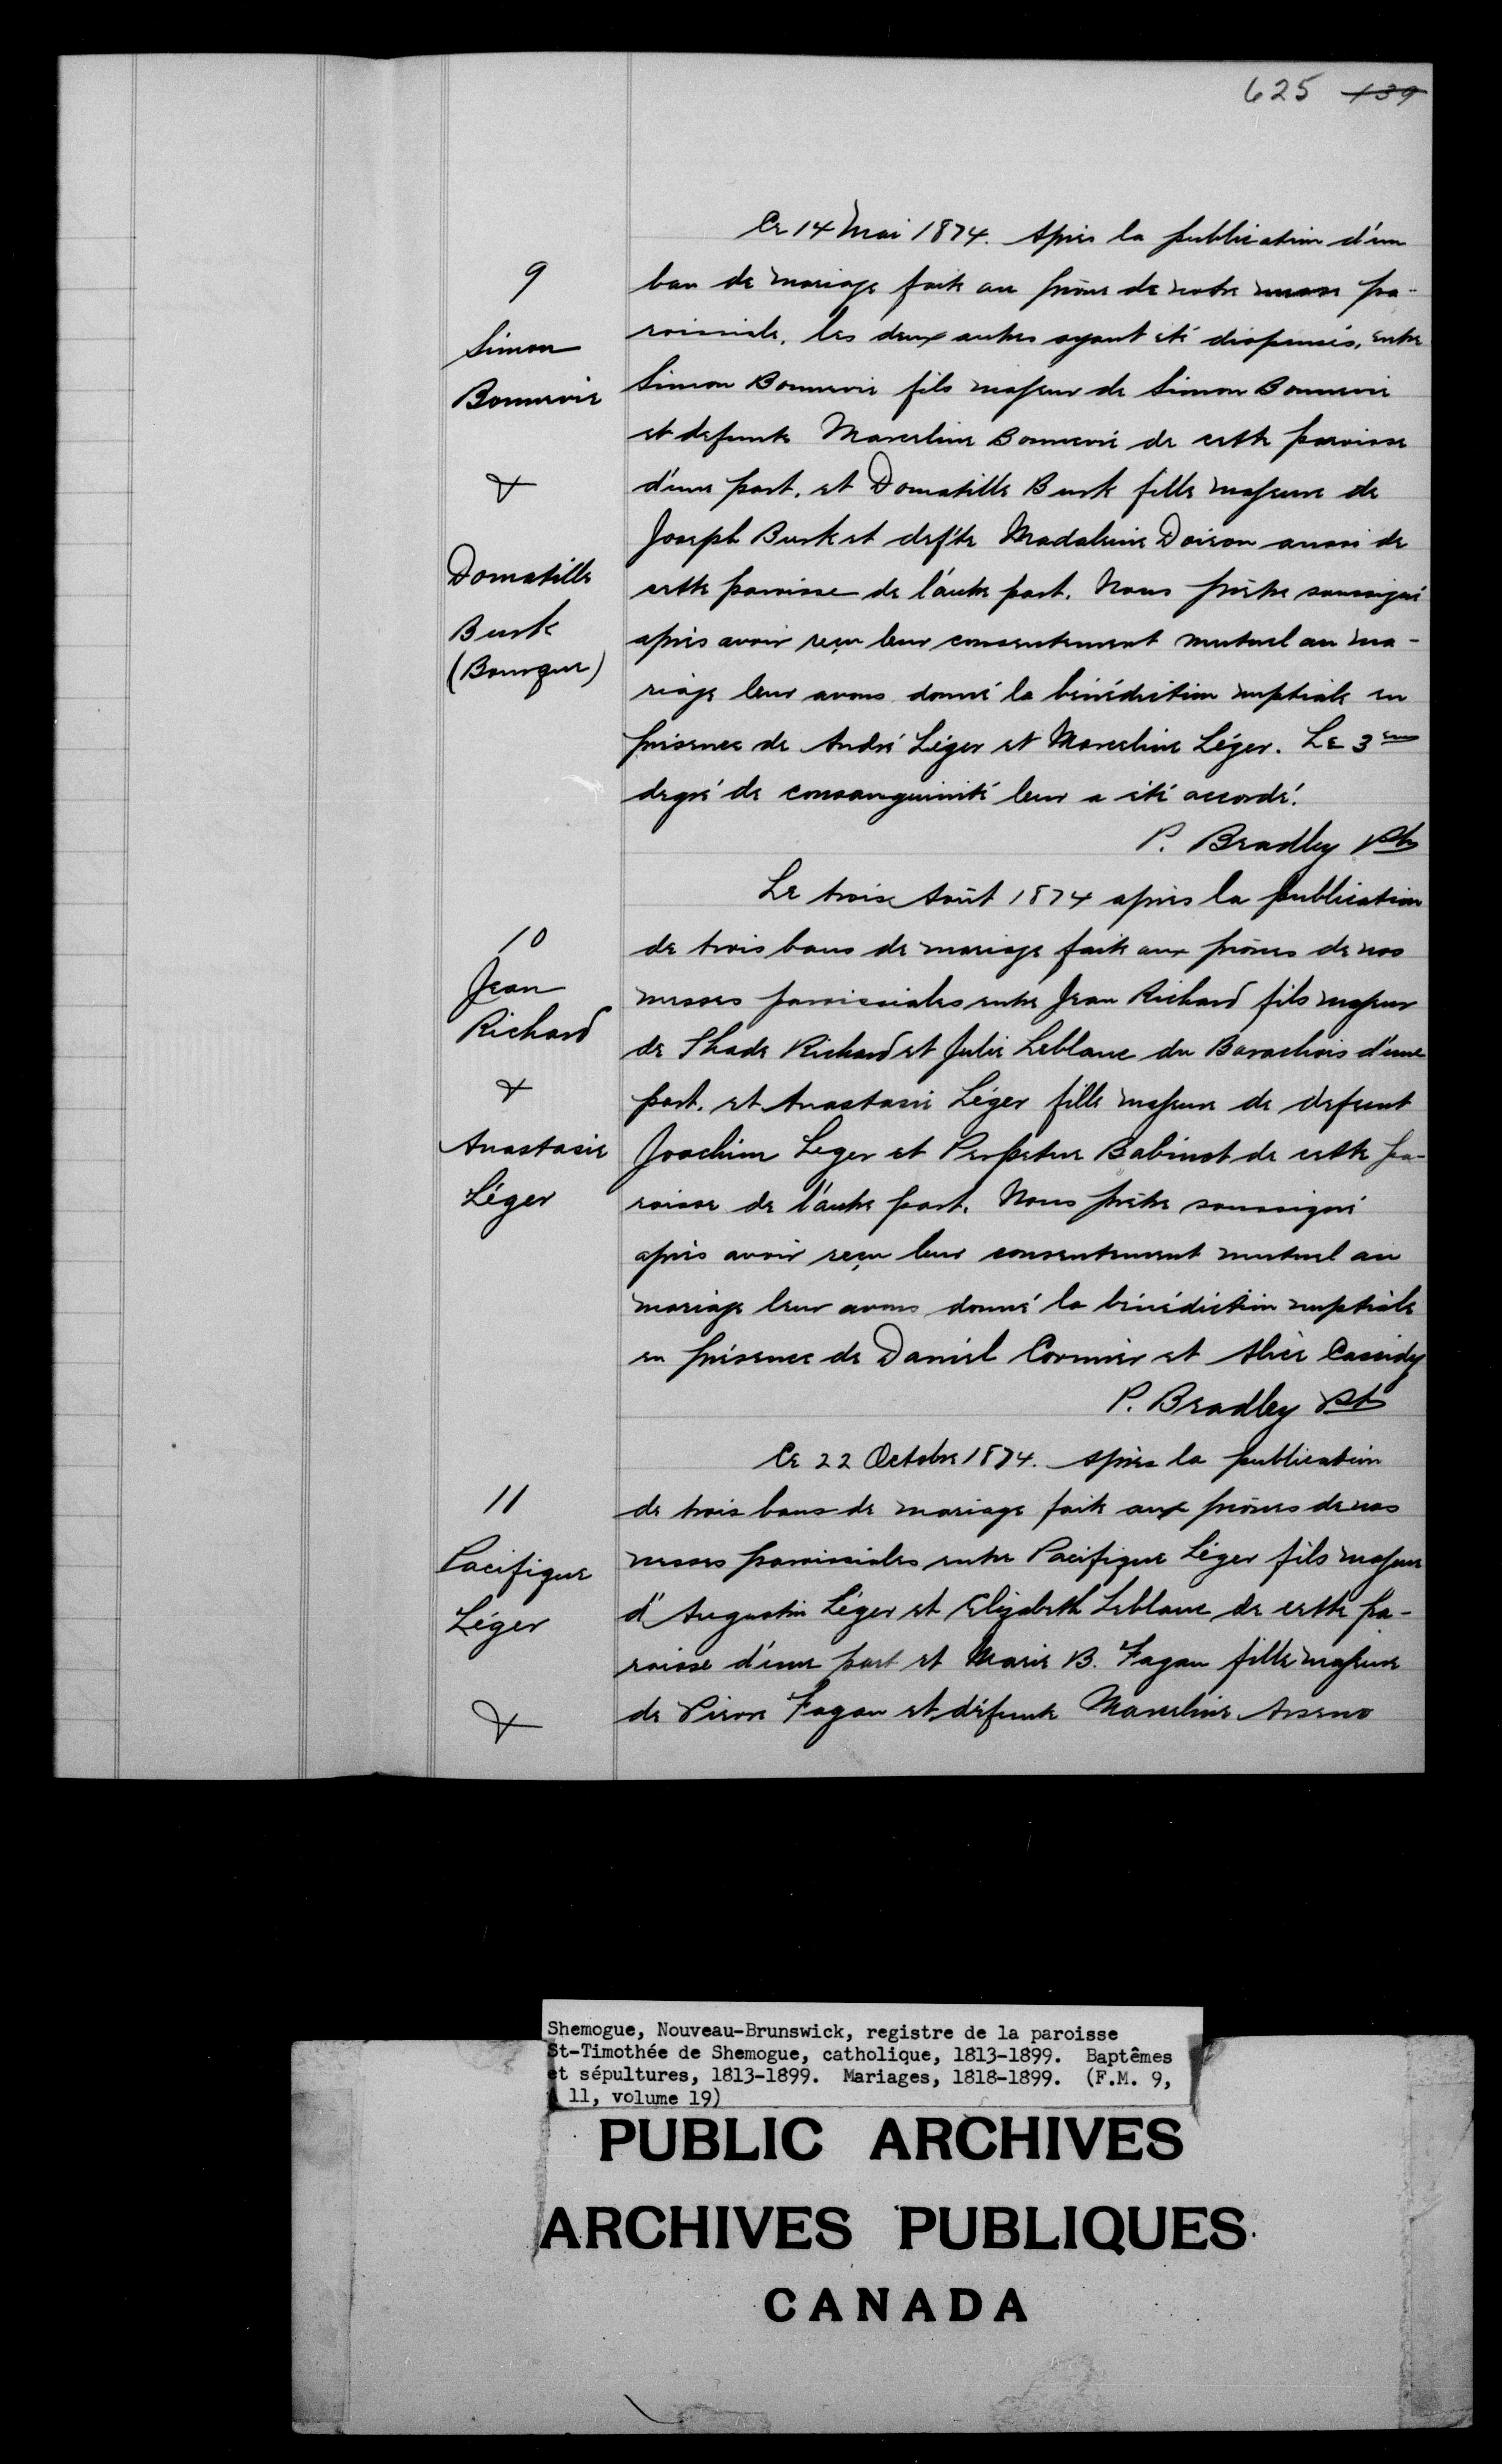 625 139
Ce 14 Mai 1874. Après la publication d'un
9
ban de mariage faite au prône de notre messe pa-
roissiale, les deux autres ayant été dispensés, entre
Simon
Bonnevie
Simon Bonnevie fils majeur de Simon Bonnevie
et defunte Marceline Bonnevie de cette paroisse
&
d'une part. et Domatille Burk fille majeure de
Joseph Burk et def'te Madaleine Doiron aussi de
Domatille
cette paroisse de l'autre part. Nous prêtre soussigné
Burk
après avoir reçu leur consentement mutuel au ma-
(Bourque)
riage leur avons donné la bénédiction nuptiale en
présence de André Léger et Marceline Léger. Le 3eme
degré de consanguinité leur a été accordé.
P. Bradley Ptr
Le trois Août 1874 après la publication
10
de trois bans de mariage faite aux prônes de nos
Jean
messes paroissiales entre Jean Richard fils majeur
Richard
de Thade Richard et Julie Leblanc du Barachois d'une
&
part. et Anastasie Léger fille majeure de defunt
Anastasie
Joachim Leger et Perpetue Babinot de cette pa-
Léger
roisse de l'autre part. Nous prêtre soussigné
après avoir reçu leur consentement mutuel au
mariage leur avons donné la bénédiction nuptiale
en présence de Daniel Cormier et Alice Cassidy
P. Bradley Ptr
Ce 22 Octobre 1874. Après la publication
11
de trois bans de mariage faite aux prônes de nos
Pacifique
messes paroissiales entre Pacifique Léger fils majeur
Léger
d'Augustin Léger et Elizabeth Leblanc de cette pa-
roisse d'une part et Marie B. Fagan fille majeure
&
de Pierre Fagan et défunte Marceline Arseno
Shemogue, Nouveau-Brunswick, registre de la paroisse
St-Timothée de Shemogue, catholique, 1813-1899. Baptêmes
et sépultures, 1813-1899. Mariages, 1818-1899. (F.M. 9,
11, volume 19)
PUBLIC ARCHIVES
ARCHIVES PUBLIQUES
CANADA